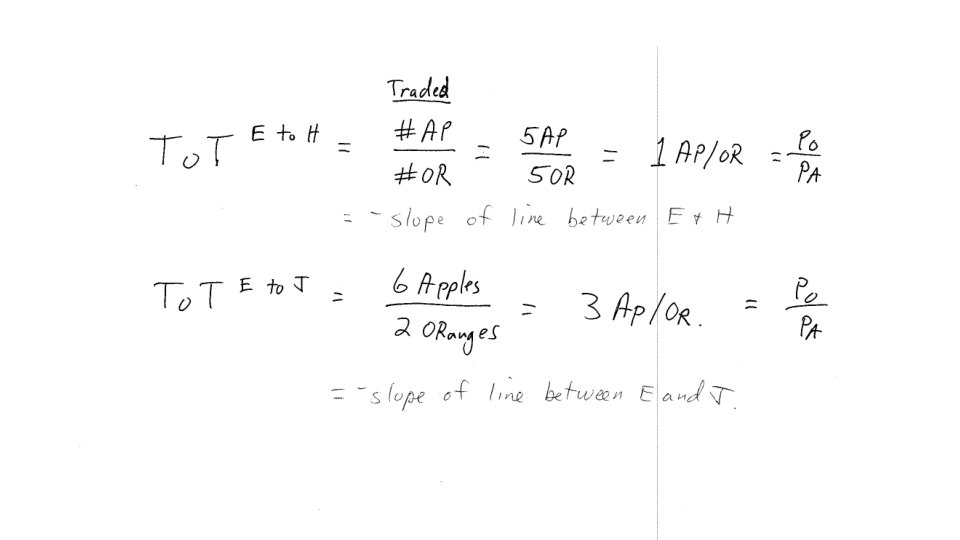 Traded
ToT E to H = #AP / #OR = 5AP / 5OR = 1 AP/OR = PO / PA
= -slope of line between E + H
ToT E to J = 6 Apples / 2 ORanges = 3 AP/OR. = PO / PA
= -slope of line between E and J.